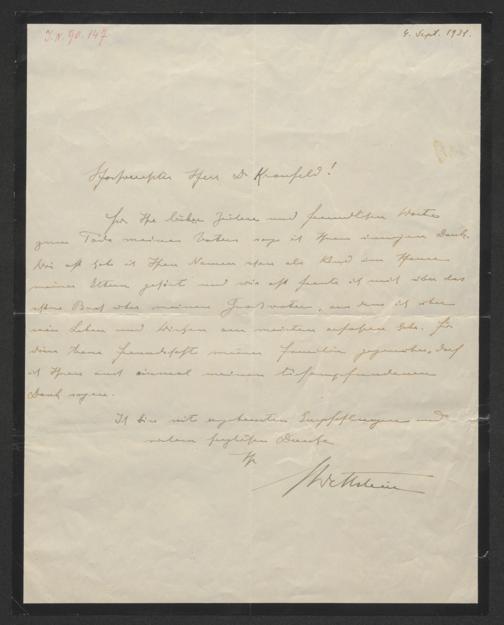 I.N. 90.147
9. Sept. 1931.
Hochverehrter Herr Dr Kronfeld!
Für Ihre lieben Zeilen und freundlichen Worte
zum Tode meines Vaters sage ich Ihnen innigen Dank.
Wie oft habe ich Ihren Namen schon als Kind im Hause
meiner Eltern gehört und wie oft freute ich mich über das
schöne Buch über meinen Grossvater, aus dem ich über
sein Leben und Wirken am meisten erfahren habe. Für
diese treue Freundschaft meiner Familie gegenüber, darf
ich Ihnen noch einmal meinen tiefempfundenen
Dank sagen.
Ich bin mit ergebensten Empfehlungen und
vielem herzlichen Danke
Ihr
Wettstein